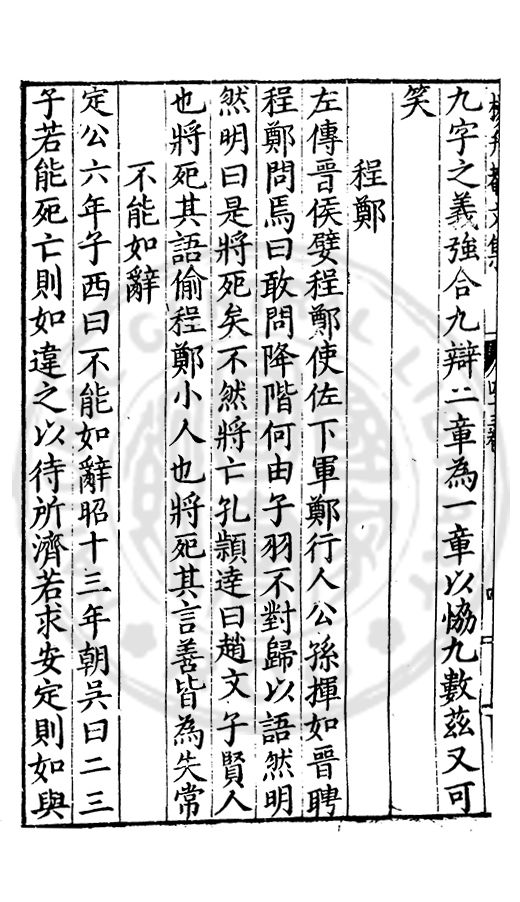 九字之義強合九辯二章為一章以恊九數茲又可
笑
程鄭
左傳晉侯嬖程鄭使佐下軍鄭行人公孫揮如晉聘
程鄭問焉曰敢問降階何由子羽不對歸以語然明
然明曰是將死矣不然將亡孔頴達曰趙文子賢人
也將死其語偷程鄭小人也將死其言善皆為失常
不能如辭
定公六年子西曰不能如辭昭十三年朝吳曰二三
子若能死亡則如違之以待所濟若求安定則如與